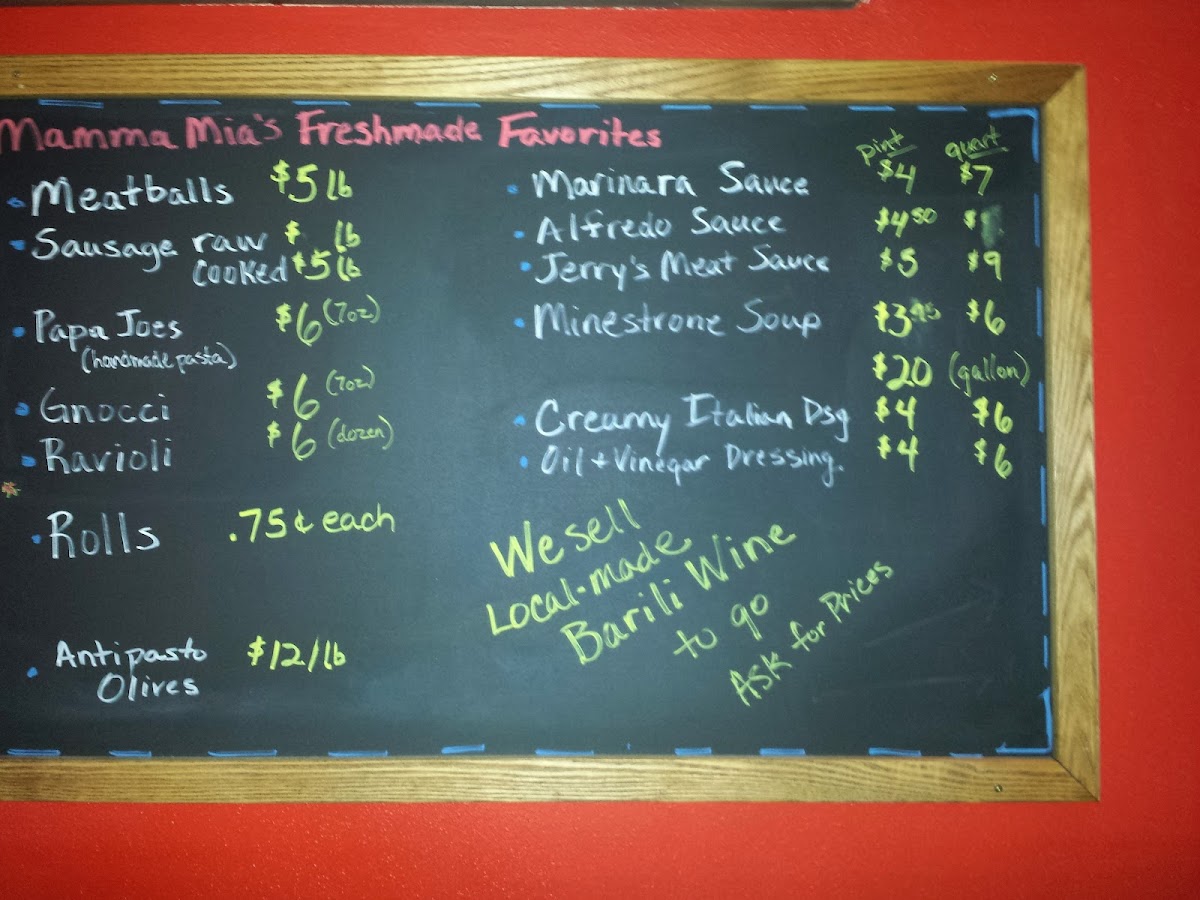 Mamma Mia's Freshmade Favorites
• Meatballs $5 lb
• Sausage raw $ lb
cooked $5 lb
• Papa Joes $6 (7oz)
(handmade pasta)
• Gnocci $6 (7oz)
• Ravioli $6 (dozen)
• Rolls .75¢ each
• Antipasto $12/lb
Olives
pint quart
• Marinara Sauce $4 $7
• Alfredo Sauce $4.50 $
• Jerry's Meat Sauce $5 $9
• Minestrone Soup $3.95 $6
$20 (gallon)
• Creamy Italian Dsg $4 $6
• Oil + Vinegar Dressing. $4 $6
We sell
Local-made
Barili Wine
to go
Ask for Prices